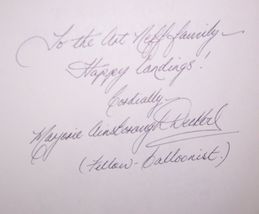 To the Art Neff family—
Happy Landings!
Cordially—
Marjorie Ainsborough Decker
(Fellow-Balloonist.)